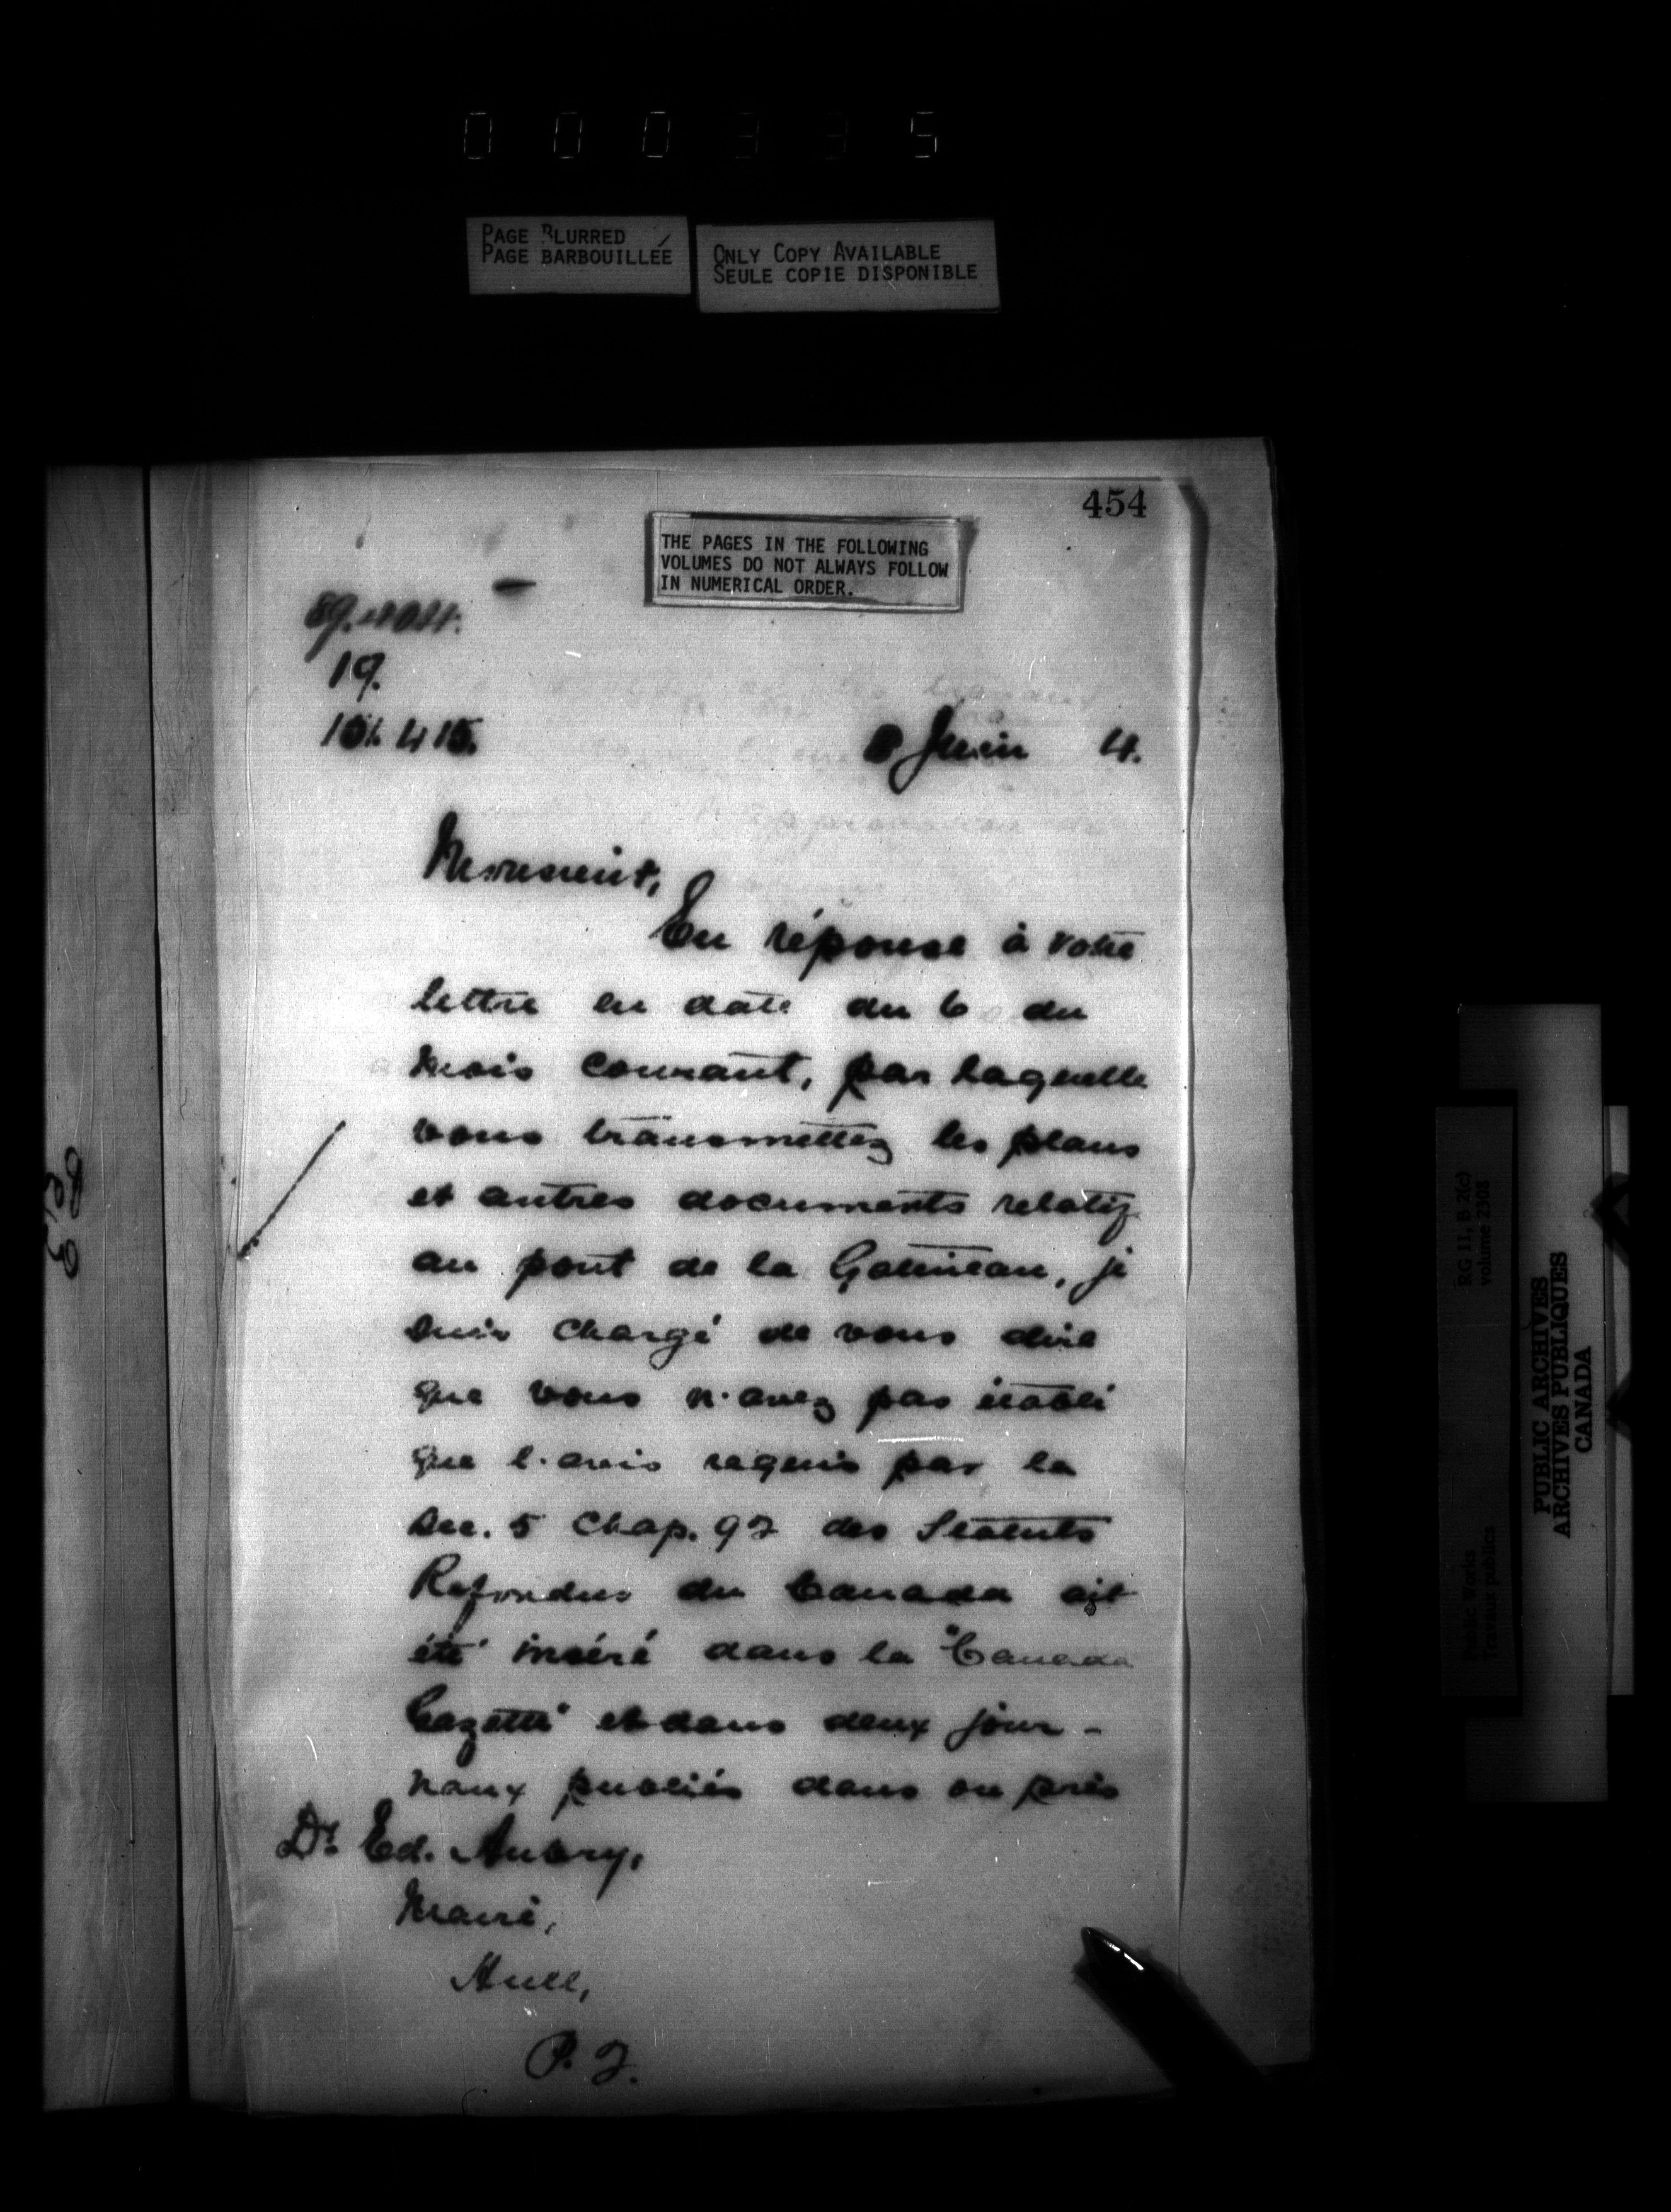 000335
PAGE BLURRED
PAGE BARBOUILLÉE
ONLY COPY AVAILABLE
SEULE COPIE DISPONIBLE
454
THE PAGES IN THE FOLLOWING
VOLUMES DO NOT ALWAYS FOLLOW
IN NUMERICAL ORDER.
19.
8 Juin 4.
Monsieur,
En réponse à votre
lettre en date du 6 du
mois courant, par laquelle
vous transmettez les plans
et autres documents relatifs
au pont de la Gatineau, je
suis chargé de vous dire
que vous n'avez pas établi
que l'avis requis par la
Sec. 5 Chap. 92 des Statuts
Refondus du Canada ait
été inséré dans la "Canada
Gazette" et dans deux jour-
naux publiés dans ou près
Dr Ed. Aubry,
Maire,
Hull,
P. Q.
RG 11, B 2(c)
volume 2308
Public Works
Travaux publics
PUBLIC ARCHIVES
ARCHIVES PUBLIQUES
CANADA